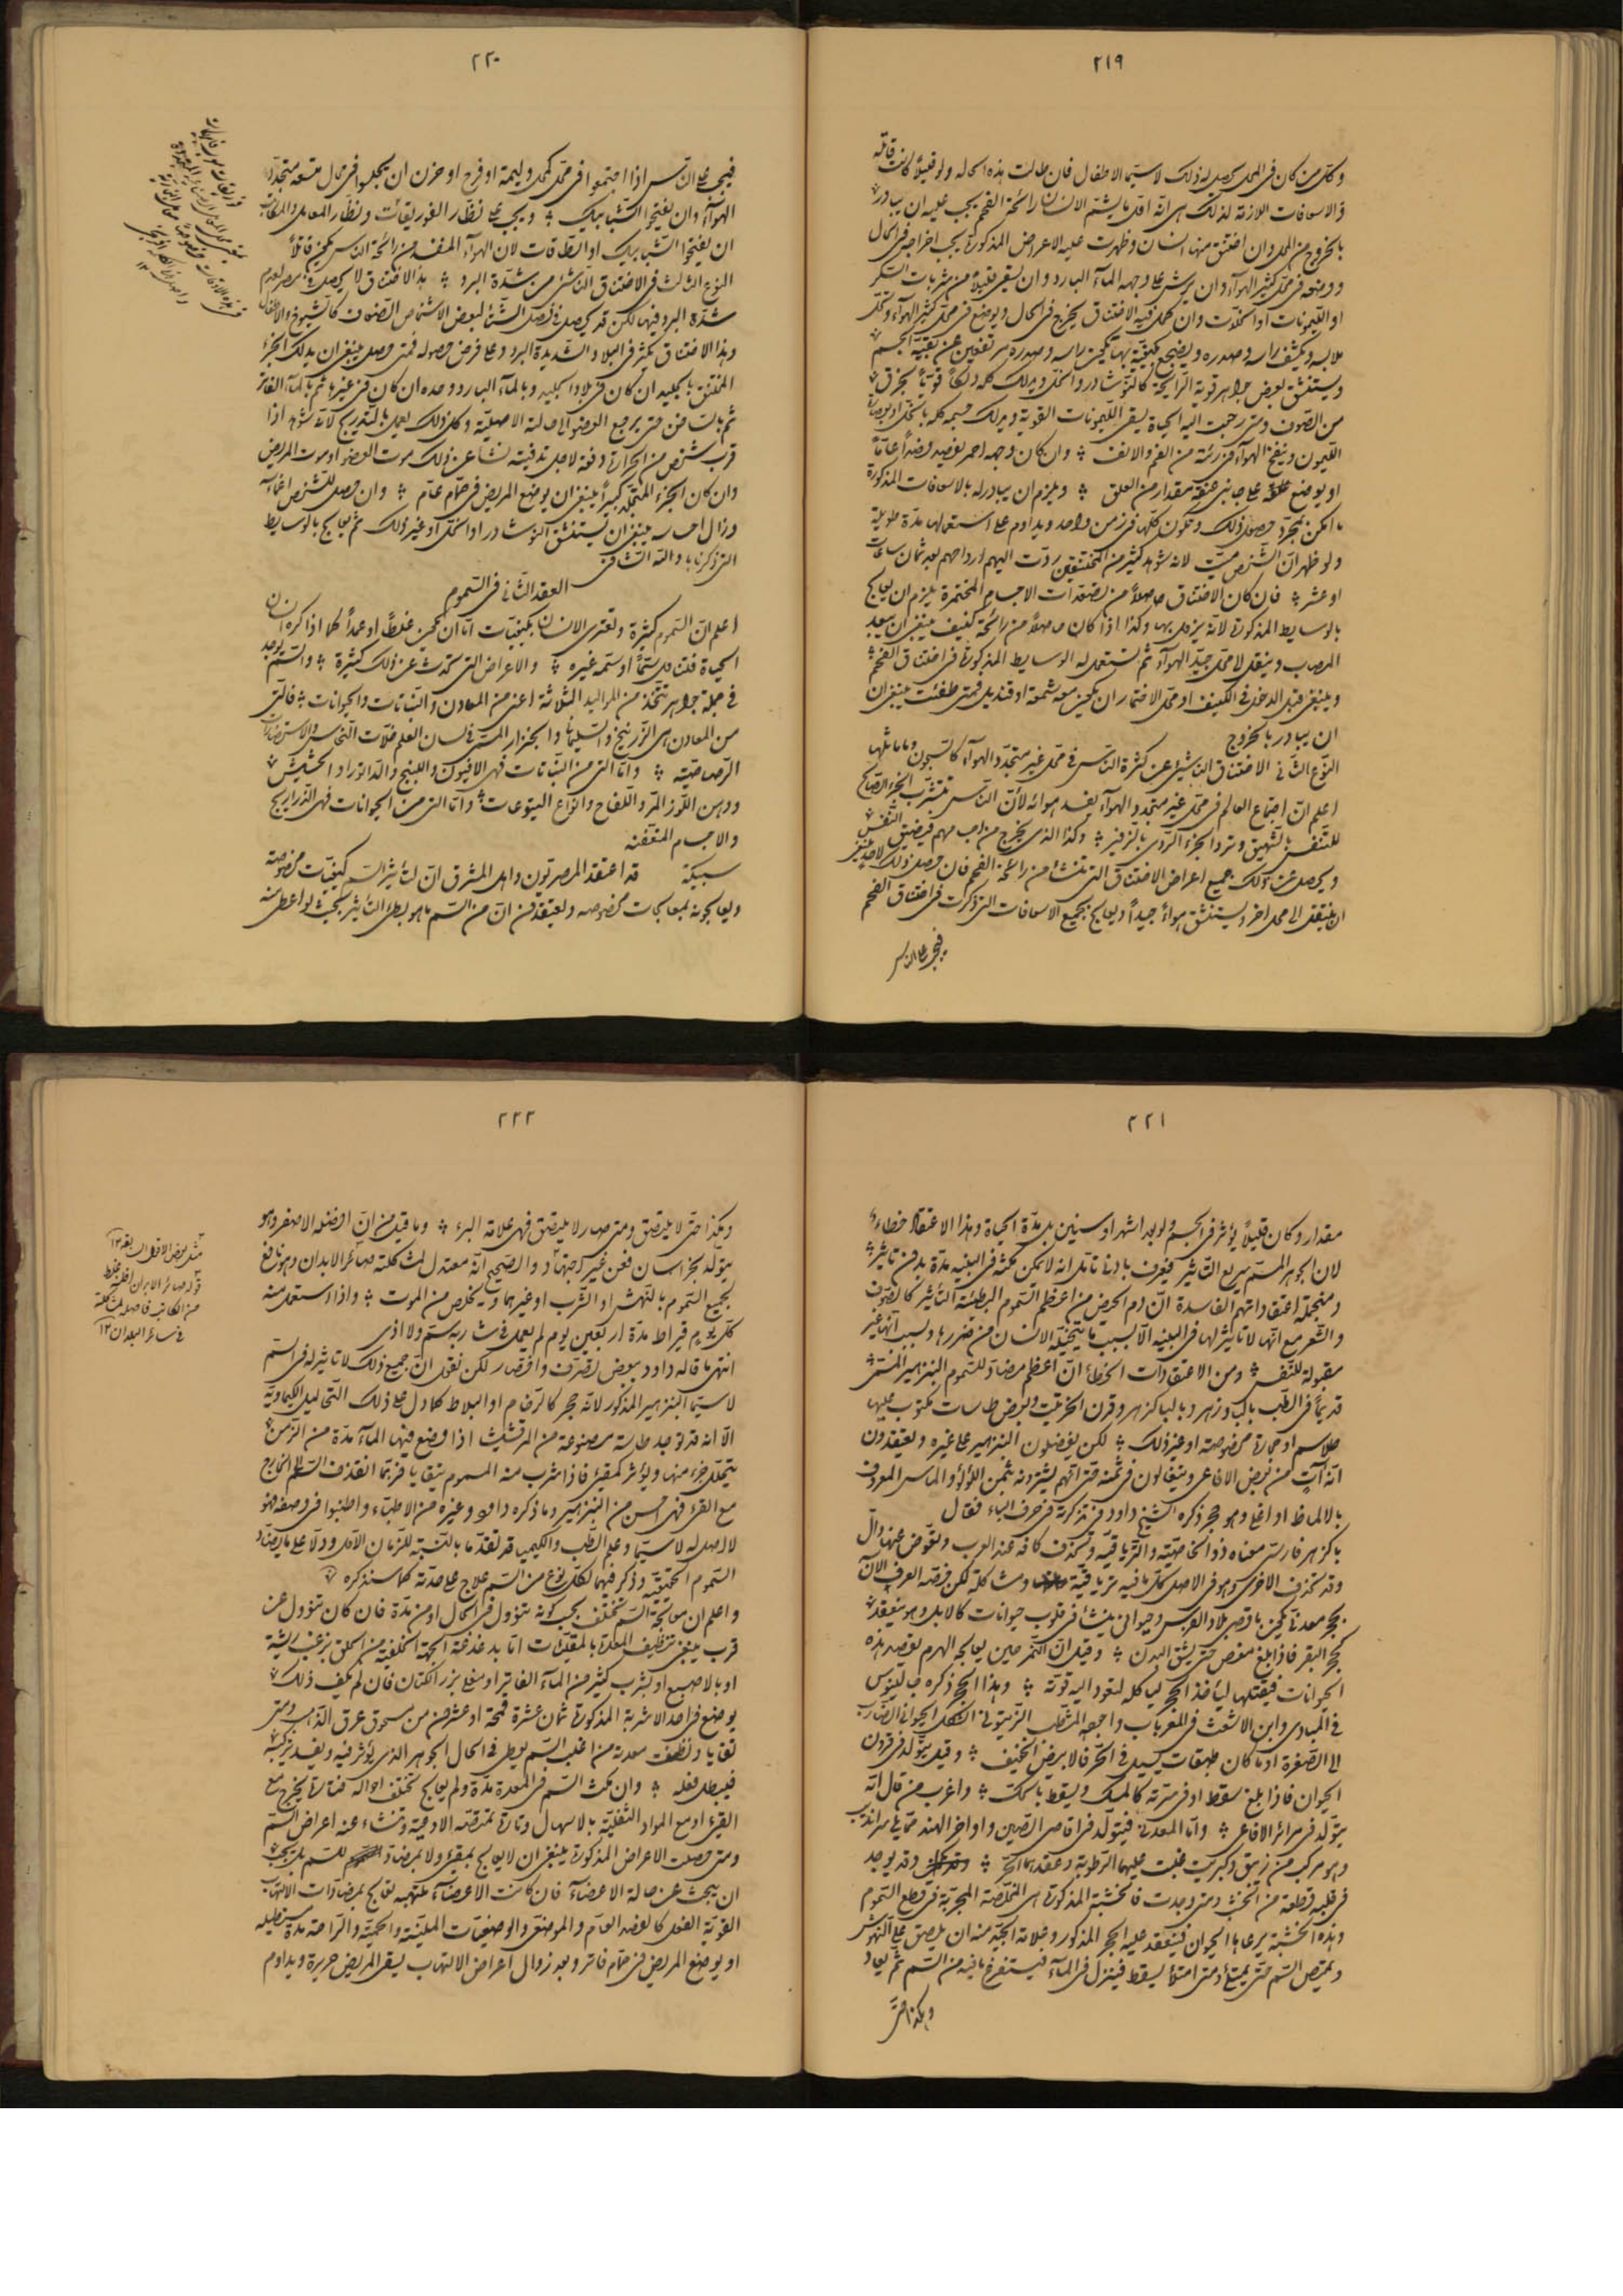 ٢١٩
وكل من كان فى المحل يحصل له ذلك لا سيما الاطفال فان طالت هذه الحاله ولو قليلا كانت قاتله
والاسعافات اللازمة لذلك هى انه اول ما يشم الانسان رائحة الفحم يجب عليه ان يبادر
بالخروج من المحل وان اختنق منها انسان وظهرت عليه الاعراض المذكورة يجب اخراجه فى الحال
ووضعه فى محل كثير الهوآء وان يرش على وجهه المآء البارد وان يسقى قليلا من شربات السكر
او الليمونات او الخل وان كان محل فيه الاختناق يخرج فى الحال ويوضع فى محل كثير الهوآء وتحل
ملابسه ويكشف راسه وصدره ويضجع بكيفية بها تكون راسه وصدره مرتفعين عن بقية الجسم
ويستنشق بعض جواهر قوية الرائحة كالنوشادر والخل ويدلك كله دلكا قويا بخرق
من الصوف ومتى رجعت اليه الحياة يسقى الليمونات القوية ويدلك جسمه كله بالخل او بعصارة
الليمون وينفخ الهوآء فى رئته من الفم والانف وان كان وجهه احمر يفصد فصدا عاما
او يوضع على جانبى عنقه مقدار من العلق ويلزم ان يبادر له بالاسعافات المذكورة
ما امكن بمجرد حصول ذلك وتكون كلها فى زمن واحد ويداوم على استعمالها مدة طويلة
ولو ظهر ان الشخص ميت لانه شوهد كثير من المختنقين ردت اليهم ارواحهم بعد ثمان ساعات
او عشر فان كان الاختناق حاصلا من تصعدات الاجسام المختمرة يلزم ان يعالج
بالوسايط المذكورة لانه يزول بها وكذا اذا كان حاصلا من رائحة كنيف ينبغى ان يبعد
المصاب وينقل لمحل جيد الهوآء ثم تستعمل له الوسايط المذكورة فى اختناق الفحم
وينبغى قبل الدخول فى الكنيف او محل الاختمار ان يكون معه شمعة او قنديل فمتى طفئت ينبغى ان
ان يبادر بالخروج
النوع الثانى الاختناق الناشئ عن كثرة الناس فى محل غير متجدد الهوآء كالسجون وما ماثلها
اعلم ان اجتماع العالم فى محل غير متجدد الهوآء يفسد هوائه لان الناس تتشرب الجزء الصالح
للتنفس بالشهيق وترد الجزء الردى بالزفير وكذا الذى يخرج من اجسامهم فيضيق التنفس
ويحصل عن ذلك جميع اعراض الاختناق التى تنشأ من رائحة الفحم فان حصل ذلك لاحد ينبغى
ان ينتقل الى محل اخر ويستنشق هواء جيدا ويعالج بجميع الاسعافات التى ذكرت فى اختناق الفحم
فيجب على الناس
٢٢٠
فيجب على الناس اذا اجتمعوا فى محل كمحل وليمة او فرح او حزن ان يجلسوا فى محال متسعة متجدد
الهوآء وان يفتحوا الشبابيك ويجب على نظار الفوريقات ونظار المعامل والمكاتب
ان يفتحوا الشبابيك او الطاقات لان الهوآء المنفسد من رائحة الناس يكون قاتلا
النوع الثالث فى الاختناق الناشئ من شدة البرد هذا الاختناق لا يحصل فى مصر لعدم
شدة البرد فيها لكن قد يحصل فى فصل الشتا لبعض الاشخاص الضعاف كالشيوخ والاطفال
وهذا الاختناق يكثر فى البلاد الشديدة البرد وعلى فرض حصوله فمتى حصل ينبغى ان يدلك الجزء
المختنق بالجليد ان كان فى بلاد الجليد وبالمآء البارد وحده ان كان فى غيرها ثم بالمآء الفاتر
ثم بالساخن حتى يرجع العضو الى حالته الاصلية وكل ذلك يعمل بالتدريج لانه شوهد اذا
قرب شخص من الحرارة دفعة لاجل تدفيته نشا عن ذلك موت العضو او موت المريض
وان كان الجزء المتجلد كبيرا ينبغى ان يوضع المريض فى حمام عام وان حصل للشخص اغمآء
وزال احساسه ينبغى ان يستنشق النوشادر او الخل او غير ذلك ثم يعالج بالوسايط
التى ذكرناها والله الشافى
العقد الثانى فى السموم
اعلم ان السموم كثيرة وتعترى الانسان بكيفيات اما ان تكون غلطا او عمدا كما اذا كره انسان
الحياة فتناول سما او سمه غيره والاعراض التى تحدث عن ذلك كثيرة والسم يوجد
فى جملة جواهر تتخذ من المواليد الثلاثة اعنى من المعادن والنباتات والحيوانات فالتى
من المعادن هى الزرنيخ والسليمانى والجنزار المسمى فى لسان العلم خلات النحاس والاستحضارات
الرصاصية واما التى من النباتات فهى الافيون والبنج والداتورا والحشيش
ودهن اللوز المر واللفاح وانواع اليتوعات واما التى من الحيوانات فهى الذراريح
والاجسام المتعفنه
سبيكة قد اعتقد المصريون واهل المشرق ان لتأثير السم كيفيات مخصوصة
ويعالجونه بمعالجات مخصوصه ويعتقدون ان من السم ما هو بطئ التاثير بحيث لو اعطى منه
٢٢١
مقدار وكان قليلا يؤثر فى الجسم ولو بعد اشهر او سنين بل مدة الحياة وهذا الاعتقاد خطاء
لان الجوهر المسم سريع التاثير فيعرف بادنا تامل انه لا يمكن مكثه فى البنيه مدة بدون تاثير
ومن جملة اعتقاداتهم الفاسدة ان دم الحيض من اعظم السموم البطيئة التأثير كالصوف
والشعر مع انها لا تاثير لها فى البنيه الا بسبب ما يتخيله الانسان من ضررها وبسبب انها غير
مقبولة للنفس ومن الاعتقادات الخطا ان اعظم مضاد للسموم البنزهير المسمى
قديما فى الطب بالبادزهر وبالباكزهر وقرن الخرتيت وبعض طاسات مكتوب عليها
طلاسم او حجارة مخصوصة او غير ذلك لكن يفضلون البنزهير على غيره ويعتقدون
انه آت من بعض الافاعى ويتغالون فى ثمنه حتى انهم يشترونه بثمن اللؤلؤ والماس المعروف
بالالماظ او اغلى وهو حجر ذكره الشيخ داود فى تذكرته فى حرف الباء فقال
باكزهر فارسى معناه ذو الخاصية والترياقيه وتحذف كافه عند العرب وتعوض عنها دال
وقد تحذف الاخرى وهو فى الاصل كل ما فيه ترياقية ومشاكلة لكن خصه العرف الآن
بحجر معدنى يكون باقصى بلاد الفرس وحيوانى ينشأ فى قلوب حيوانات كالابل وهو ينعقد
كحجر البقر فاذا بلغ مغص حتى يشق البدن وقيل ان النمر حين يعالجه الهرم يقصد هذه
الحيوانات فيقتلها ليأخذ الحجر لياكله لتعود اليه قوته وهذا الحجر ذكره جالينوس
فى المبادى وابن الاشعث فى المغربات واجمعه المشطب الزيتونى الشكل الحيوانى الضارب
الى الصفرة او ما كان طبقات كسيل فى الحجر فالابيض الخفيف وقيل يتولد فى قرون
الحيوان فاذا بلغ سقط او فى سرته كالمسك ويسقط بالحك واغرب من قال انه
يتولد فى مرائر الافاعى واما المعدنى فيتولد فى اقاصى الصين واواخر الهند مما يلى سرانديب
وهو مركب من زيبق وكبريت غلبت عليهما الرطوبة وعقدهما الحر وقد يوجد
فى قلبه قطعة من الخشب ومتى وجدت فالخشبة المذكورة هى المخلصة المجربة فى قطع السموم
وهذه الخشبة يرعاها الحيوان فينعقد عليه الحجر المذكور وعلامة الجيد منه ان يلصق على النهوش
ويمتص السم حتى يمتلئ ومتى امتلا يسقط فينزل فى المآء فيستفرغ ما فيه من السم ثم يعاد
وهكذا حتى
٢٢٢
وهكذا حتى لا يلتصق ومتى صار لا يلتصق فهى علامة البرء وما قيل من ان افضله الاصفر وهو
يتولد بخراسان فعن غير وجهها والصحيح انه معتدل لمشاكلته صائر الابدان وهو نافع
لجميع السموم بالنهش او الشرب او غيرهما ويخلص من الموت واذا استعمل منه
كل يوم قيراط مدة اربعين يوم لم يعمل فى شاربه سم ولا اذى
انتهى ما قاله داود ببعض تصرف واختصار لكن نقول ان جميع ذلك لا تاثير له فى السم
لا سيما البنزهير المذكور لانه حجر كالرخام او البلاط كما دل على ذلك التحاليل الكيماوية
الا انه قد توجد طاسة مصنوعة من المرقشيث اذا وضع فيها المآء مدة من الزمن
يتحلل جزء منها ويؤثر كمقيئ فاذا شرب منه المسموم يتقايا فربما انقذف السم الخارج
مع القئ فهى احسن من البنزهير وما ذكره داود وغيره من الاطباء واطنبوا فى وصفه فهو
لا اصل له لا سيما وعلم الطب والكيميا قد تقدما بالنسبة للزمان الاول ودلا على ما يضاد
السموم الحقيقيه وذكر فيهما لكل نوع من السم علاج على حدته كما سنذكره
واعلم ان معالجة السم تختلف بحسب كونه تنوول فى الحال او من مدة فان كان تنوول عن
قرب ينبغى تنظيف المعدة بالمقيئات اما بدغدغة الجهة الخلفية من الحلق بزغب ريشة
او بالاصبع او بشرب كثير من المآء الفاتر او مغلى بزر الكتان فان لم يكف ذلك
يوضع فى احد الاشربة المذكورة ثمان عشرة قمحة او عشرون من مسحوق عرق الذهب ومتى
تقايا ونظفت معدته من اغلب السم يعطى فى الحال الجوهر الذى يؤثر فيه ويفسد تركيبه
فيبطل فعله وان مكث السم فى المعدة مدة ولم يعالج تختلف احواله فتارة يخرج مع
القئ او مع المواد الثفليه بالاسهال وتارة تمتصه الاوعية وتنشاء عنه اعراض السم
ومتى حصلت الاعراض المذكورة ينبغى ان لا يعالج بمقيئ ولا بمضاد للسم بل يجب
ان يبحث عن حالة الاعضآء فان كانت الاعضآء ملتهبه تعالج بمضادات الالتهاب
القوية الفعل كالفصد العام والموضعى والوضعيات الملينة والحمية والراحة مدة مستطيله
او يوضع المريض فى حمام فاتر وبعد زوال اعراض الالتهاب يسقى المريض حريرة ويداوم
قوله صائر الابدان غلط
من الكاتب فاصله لمشاكلته
فى سائر البدان ١٢